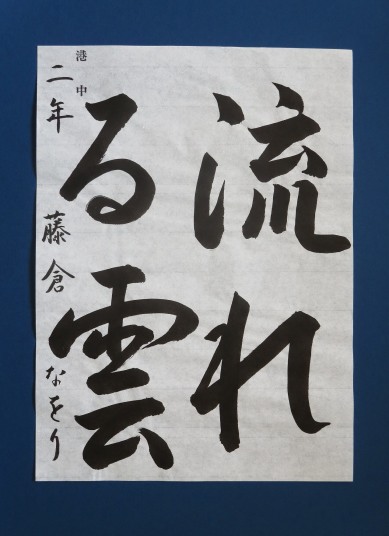 流れ
る雲
港中
二年 藤倉なをり